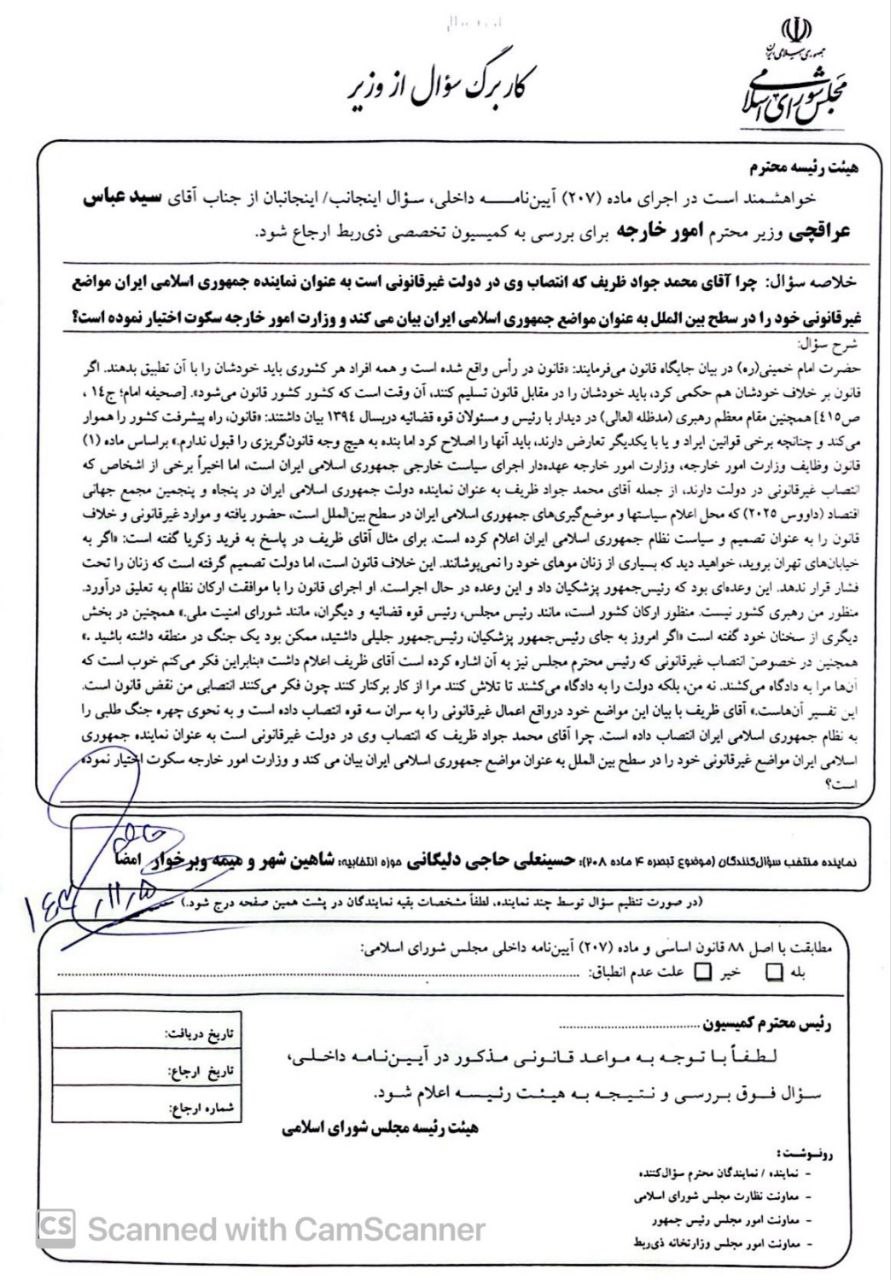 جمهوری اسلامی ایران
مجلس شورای اسلامی
کاربرگ سؤال از وزیر
هیئت رئیسه محترم
خواهشمند است در اجرای ماده (۲۰۷) آیین‌نامـــه داخلی، سؤال اینجانب/ اینجانبان از جناب آقای سید عباس
عراقچی وزیر محترم امور خارجه برای بررسی به کمیسیون تخصصی ذی‌ربط ارجاع شود.
خلاصه سؤال: چرا آقای محمد جواد ظریف که انتصاب وی در دولت غیرقانونی است به عنوان نماینده جمهوری اسلامی ایران مواضع
غیرقانونی خود را در سطح بین الملل به عنوان مواضع جمهوری اسلامی ایران بیان می کند و وزارت امور خارجه سکوت اختیار نموده است؟
شرح سؤال:
حضرت امام خمینی(ره) در بیان جایگاه قانون می‌فرمایند: «قانون در رأس واقع شده است و همه افراد هر کشوری باید خودشان را با آن تطبیق بدهند. اگر
قانون بر خلاف خودشان هم حکمی کرد، باید خودشان را در مقابل قانون تسلیم کنند، آن وقت است که کشور کشور قانون می‌شود». [صحیفه امام؛ ج۱۴ ،
ص۴۱۵] همچنین مقام معظم رهبری (مدظله العالی) در دیدار با رئیس و مسئولان قوه قضائیه درسال ۱۳۹۴ بیان داشتند: «قانون، راه پیشرفت کشور را هموار
می‌کند و چنانچه برخی قوانین ایراد و یا با یکدیگر تعارض دارند، باید آنها را اصلاح کرد اما بنده به هیچ وجه قانون‌گریزی را قبول ندارم.» براساس ماده (۱)
قانون وظایف وزارت امور خارجه، وزارت امور خارجه عهده‌دار اجرای سیاست خارجی جمهوری اسلامی ایران است، اما اخیراً برخی از اشخاص که
انتصاب غیرقانونی در دولت دارند، از جمله آقای محمد جواد ظریف به عنوان نماینده دولت جمهوری اسلامی ایران در پنجاه و پنجمین مجمع جهانی
اقتصاد (داووس ۲۰۲۵) که محل اعلام سیاستها و موضع‌گیری‌های جمهوری اسلامی ایران در سطح بین‌الملل است، حضور یافته و موارد غیرقانونی و خلاف
قانون را به عنوان تصمیم و سیاست نظام جمهوری اسلامی ایران اعلام کرده است. برای مثال آقای ظریف در پاسخ به فرید زکریا گفته است: «اگر به
خیابان‌های تهران بروید، خواهید دید که بسیاری از زنان موهای خود را نمی‌پوشانند. این خلاف قانون است، اما دولت تصمیم گرفته است که زنان را تحت
فشار قرار ندهد. این وعده‌ای بود که رئیس‌جمهور پزشکیان داد و این وعده در حال اجراست. او اجرای قانون را با موافقت ارکان نظام به تعلیق درآورد.
منظور من رهبری کشور نیست. منظور ارکان کشور است، مانند رئیس مجلس، رئیس قوه قضائیه و دیگران، مانند شورای امنیت ملی.» همچنین در بخش
دیگری از سخنان خود گفته است «اگر امروز به جای رئیس‌جمهور پزشکیان، رئیس‌جمهور جلیلی داشتید، ممکن بود یک جنگ در منطقه داشته باشید .»
همچنین در خصوص انتصاب غیرقانونی که رئیس محترم مجلس نیز به آن اشاره کرده است آقای ظریف اعلام داشت «بنابراین فکر می‌کنم خوب است که
آن‌ها مرا به دادگاه می‌کشند. نه من، بلکه دولت را به دادگاه می‌کشند تا تلاش کنند مرا از کار برکنار کنند چون فکر می‌کنند انتصابی من نقض قانون است.
این تفسیر آن‌هاست.» آقای ظریف با بیان این مواضع خود درواقع اعمال غیرقانونی را به سران سه قوه انتصاب داده است و به نحوی چهره جنگ طلبی را
به نظام جمهوری اسلامی ایران انتصاب داده است. چرا آقای محمد جواد ظریف که انتصاب وی در دولت غیرقانونی است به عنوان نماینده جمهوری
اسلامی ایران مواضع غیرقانونی خود را در سطح بین الملل به عنوان مواضع جمهوری اسلامی ایران بیان می کند و وزارت امور خارجه سکوت اختیار نموده
است؟
نماینده منتخب سؤال‌کنندگان (موضوع تبصره ۴ ماده ۲۰۸): حسینعلی حاجی دلیگانی حوزه انتخابیه: شاهین شهر و میمه وبرخوار امضا
(در صورت تنظیم سؤال توسط چند نماینده، لطفاً مشخصات بقیه نمایندگان در پشت همین صفحه درج شود.)
مطابقت با اصل ۸۸ قانون اساسی و ماده (۲۰۷) آیین‌نامه داخلی مجلس شورای اسلامی:
بله خیر علت عدم انطباق:
رئیس محترم کمیسیون
لطـفـاً بـا تـوجـه بـه مـواعـد قـانـونـی مـذکـور در آیـیـن‌نـامـه داخـلـی،
سؤال فـوق بـررسـی و نـتـیـجـه بـه هـیـئـت رئـیـسـه اعـلام شـود.
هیئت رئیسه مجلس شورای اسلامی
تاریخ دریافت:
تاریخ ارجاع:
شماره ارجاع:
رونـوشـت:
- نماینده / نمایندگان محترم سؤال‌کننده
- معاونت نظارت مجلس شورای اسلامی
- معاونت امور مجلس رئیس جمهور
- معاونت امور مجلس وزارتخانه ذی‌ربط
CS Scanned with CamScanner